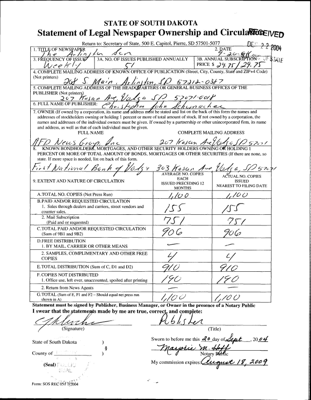 STATE OF SOUTH DAKOTA
Statement of Legal Newspaper Ownership and Circulation
RECEIVED
Return to: Secretary of State, 500 E. Capitol, Pierre, SD 57501-5077
1. TITLE OF NEWSPAPER
2. DATE
The Arlington Sun
3. FREQUENCY OF ISSUE
3A. NO. OF ISSUES PUBLISHED ANNUALLY
3B. ANNUAL SUBSCRIPTION
Weekly
51
PRICE $
4. COMPLETE MAILING ADDRESS OF KNOWN OFFICE OF PUBLICATION (Street, City, County, State and ZIP+4 Code)
(Not printers)
Main Arlington SD 57212-0367
5. COMPLETE MAILING ADDRESS OF THE HEADQUARTERS OR GENERAL BUSINESS OFFICES OF THE
PUBLISHER (Not printers)
6. FULL NAME OF PUBLISHER:
7. OWNER (If owned by a corporation, its name and address must be stated and
addresses of stockholders owning or holding 1 percent or more of total amount of stock. If not owned by a corporation, the
names and addresses of the individual owners must be given. If owned by a partnership or other unincorporated firm, its name
and address, as well as that of each individual must be given.
FULL NAME
COMPLETE MAILING ADDRESS
8. KNOWN BONDHOLDERS, MORTGAGEES, AND OTHER SECURITY HOLDERS OWNING OR HOLDING 1
PERCENT OR MORE OF TOTAL AMOUNT OF BONDS, MORTGAGES OR OTHER SECURITIES (If there are none, so
state. If more space is needed, list on back of this form.
First National Bank of
9. EXTENT AND NATURE OF CIRCULATION
AVERAGE NO. COPIES EACH ISSUED PRECEDING 12 MONTHS
ACTUAL NO. COPIES ISSUED NEAREST TO FILING DATE
A. TOTAL NO. COPIES (Net Press Run)
1,100
1,100
B. PAID AND/OR REQUESTED CIRCULATION
1. Sales through dealers and carriers, street vendors and
counter sales.
155
155
2. Mail Subscription
(Paid and or requested)
751
751
C. TOTAL PAID AND/OR REQUESTED CIRCULATION
(Sum of 9B1 and 9B2)
906
906
D. FREE DISTRIBUTION
1. BY MAIL, CARRIER OR OTHER MEANS
2. SAMPLES, COMPLIMENTARY AND OTHER FREE
COPIES
4
4
E. TOTAL DISTRIBUTION (Sum of C, D1 and D2)
910
910
F. COPIES NOT DISTRIBUTED
1. Office use, left over, unaccounted, spoiled after printing
190
190
2. Return from News Agents
G. TOTAL (Sum of E, F1 and F2 - Should equal net press run
shown in A)
1,100
1,100
Statement must be signed by Publisher, Business Manager, or Owner in the presence of a Notary Public
I swear that the statements made by me are true, correct, and complete:
Publisher
(Signature)
(Title)
State of South Dakota )
Sworn to before me this 20 day of Sept 2004
County of )
Notary Public
(Seal)
My commission expires: August 18, 2009